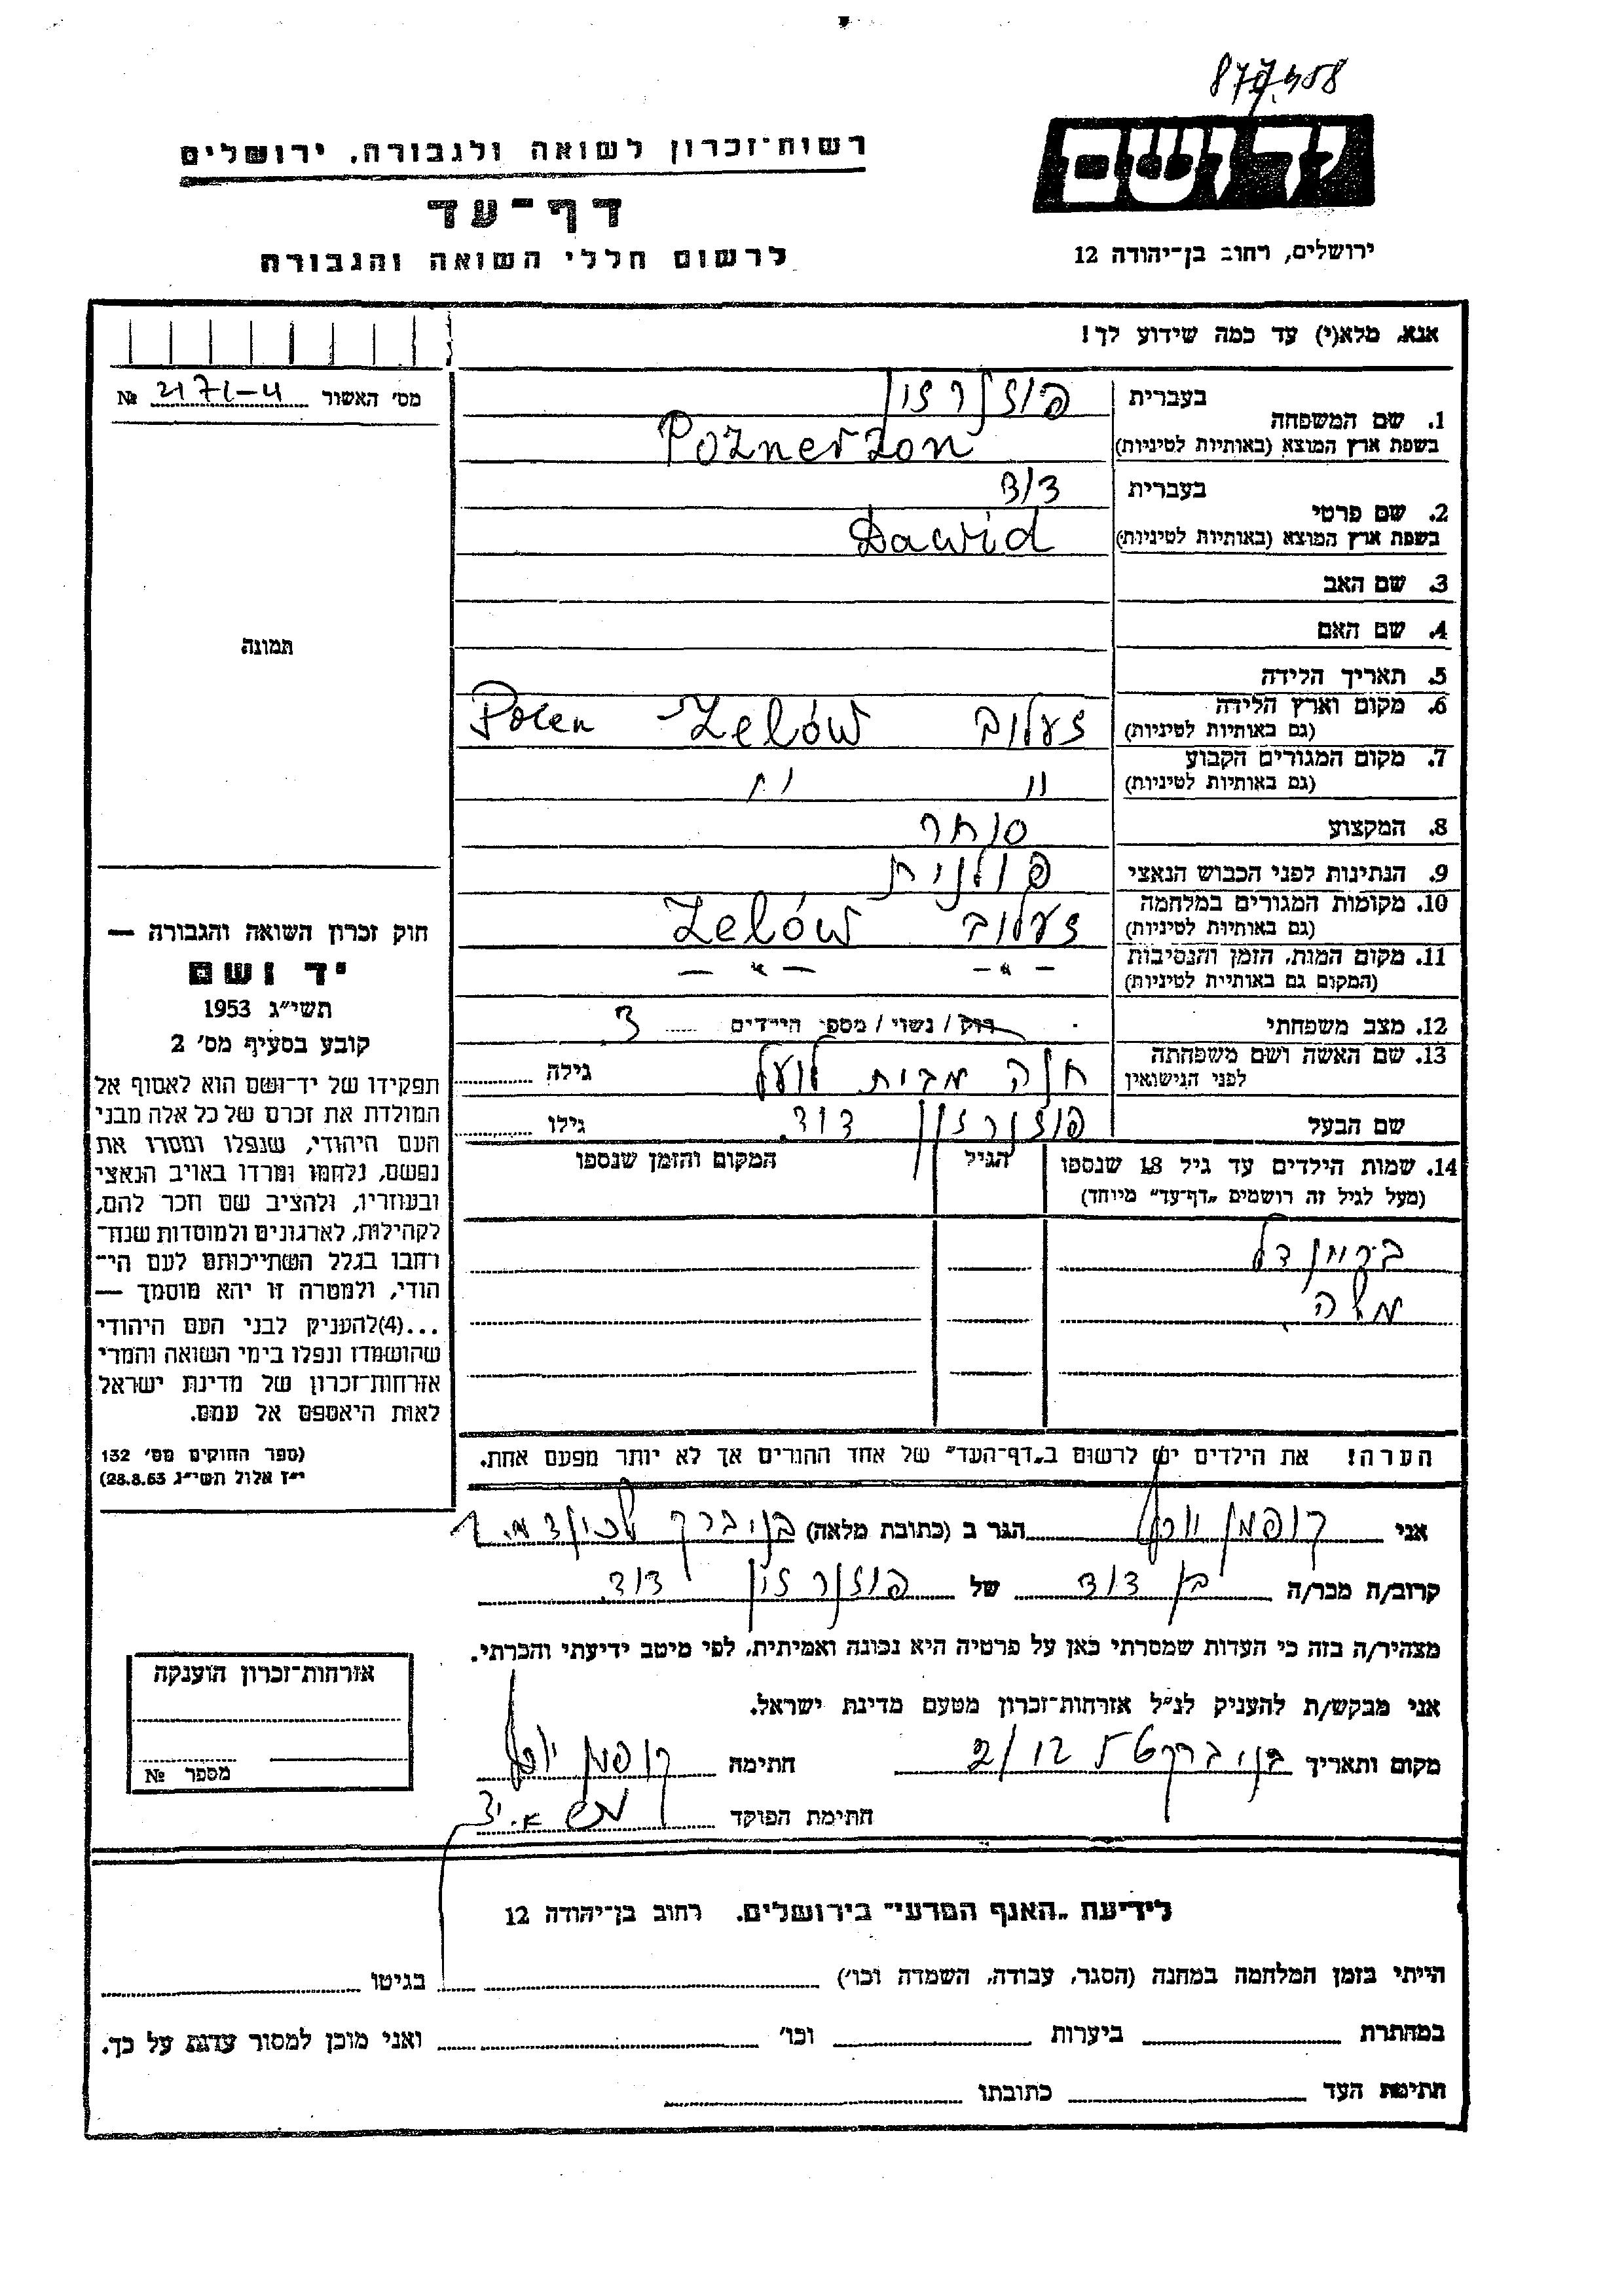 877408
רשות־זכרון לשואה ולגבורה, ירושלים
יד ושם
דף־עד
ירושלים, רחוב בן־יהודה 12
לרשום חללי השואה והגבורה
אנא, מלא(י) עד כמה שידוע לך!
מס' האשור № 2171-4
1. שם המשפחה בעברית פוזנרזון
בשפת ארץ המוצא (באותיות לטיניות) Poznerzon
2. שם פרטי בעברית דוד
בשפת ארץ המוצא (באותיות לטיניות) Dawid
3. שם האב
4. שם האם
תמונה
5. תאריך הלידה
6. מקום וארץ הלידה (גם באותיות לטיניות) זעלוב Zelów Polen
7. מקום המגורים הקבוע (גם באותיות לטיניות) " "
8. המקצוע סוחר
9. הנתינות לפני הכבוש הנאצי פולנית
10. מקומות המגורים במלחמה (גם באותיות לטיניות) זעלוב Zelów
11. מקום המות, הזמן והנסיבות (המקום גם באותיות לטיניות) -"- -"-
12. מצב משפחתי רוק / נשוי / מספר הילדים 3
13. שם האשה ושם משפחתה לפני הנישואין חנה מבית גילה
שם הבעל פוזנרזון דוד גילו
14. שמות הילדים עד גיל 18 שנספו (מעל לגיל זה רושמים „דף־עד" מיוחד) הגיל המקום והזמן שנספו
מלה
הערה! את הילדים יש לרשום ב„דף־העד" של אחד ההורים אך לא יותר מפעם אחת.
חוק זכרון השואה והגבורה —
יד ושם
תשי"ג 1953
קובע בסעיף מס' 2
תפקידו של יד־ושם הוא לאסוף אל
המולדת את זכרם של כל אלה מבני
העם היהודי, שנפלו ומסרו את
נפשם, נלחמו ומרדו באויב הנאצי
ובעוזריו, ולהציב שם וזכר להם,
לקהילות, לארגונים ולמוסדות שנח־
רחבו בגלל השתייכותם לעם הי־
הודי, ולמטרה זו יהא מוסמך —
...(4)להעניק לבני העם היהודי
שהושמדו ונפלו בימי השואה והמרי
אזרחות־זכרון של מדינת ישראל
לאות היאספם אל עמם.
(ספר החוקים מס' 132
י"ז אלול תשי"ג 28.8.53)
אני קופמן הגר ב (כתובת מלאה) בני ברק
קרוב/ה מכר/ה בן דוד של פוזנרזון דוד
מצהיר/ה בזה כי העדות שמסרתי כאן על פרטיה היא נכונה ואמיתית, לפי מיטב ידיעתי והכרתי.
אני מבקש/ת להעניק לנ"ל אזרחות־זכרון מטעם מדינת ישראל.
מקום ותאריך בני ברק חתימה קופמן
חתימת הפוקד
אזרחות־זכרון הוענקה
מספר №
לידיעת „האגף המדעי" בירושלים, רחוב בן־יהודה 12
הייתי בזמן המלחמה במחנה (הסגר, עבודה, השמדה וכו') בגיטו
במחתרת ביערות וכו' ואני מוכן למסור עדות על כך.
חתימת העד כתובתו